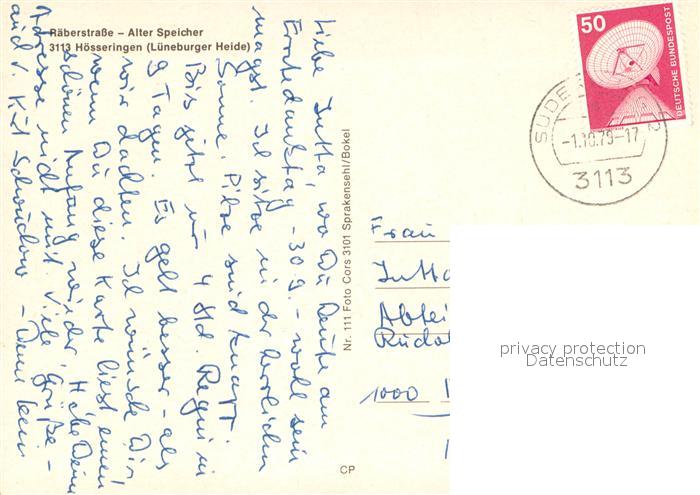 Räberstraße – Alter Speicher
3113 Hösseringen (Lüneburger Heide)
Liebe Jutta, wo Du heute am
Erntedanktag – 30.9. – wohl sein
magst. Ich sitze in der herrlichen
Sonne. Pilze sind knapp.
Bis jetzt nur 4 Std. Regen in
9 Tagen. Es geht besser – als
wir dachten. Ich wünsche Dir
wenn Du diese Karte liest einen
schönen Anfang wieder. Habe Deine
Adresse nicht mit. Viele Grüße –
auch v. – Denn kein
Nr. 111 Foto Cors 3101 Sprakensehl/Bokel
CP
50
DEUTSCHE BUNDESPOST
SUDE
-1.10.79-17
3113
Frau
Jutta
Ablei
Rudol
1000
privacy protection
Datenschutz